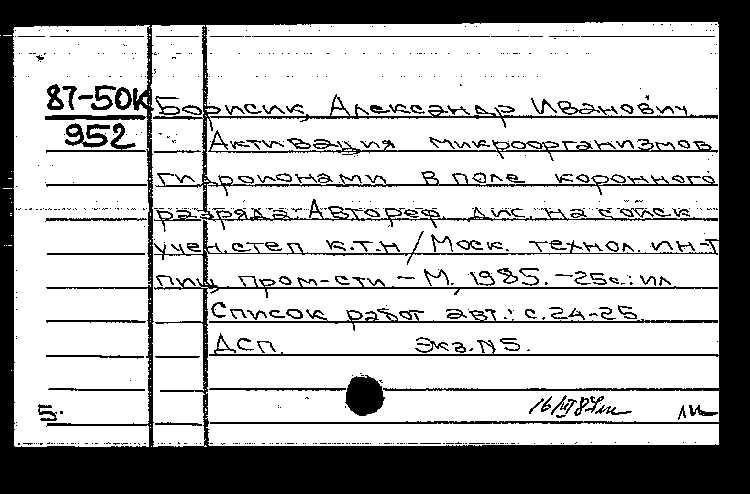 87-50К Борисик, Александр Иванович
952 Активация микроорганизмов
гидроионами в поле коронного
разряда: Автореф. дис. на соиск.
учен. степ. к.т.н / Моск. технол. ин-т
пищ. пром-сти. - М., 1985. - 25с.: ил
Список работ авт.: с. 24-25
ДСП. Экз. N5.
Б.